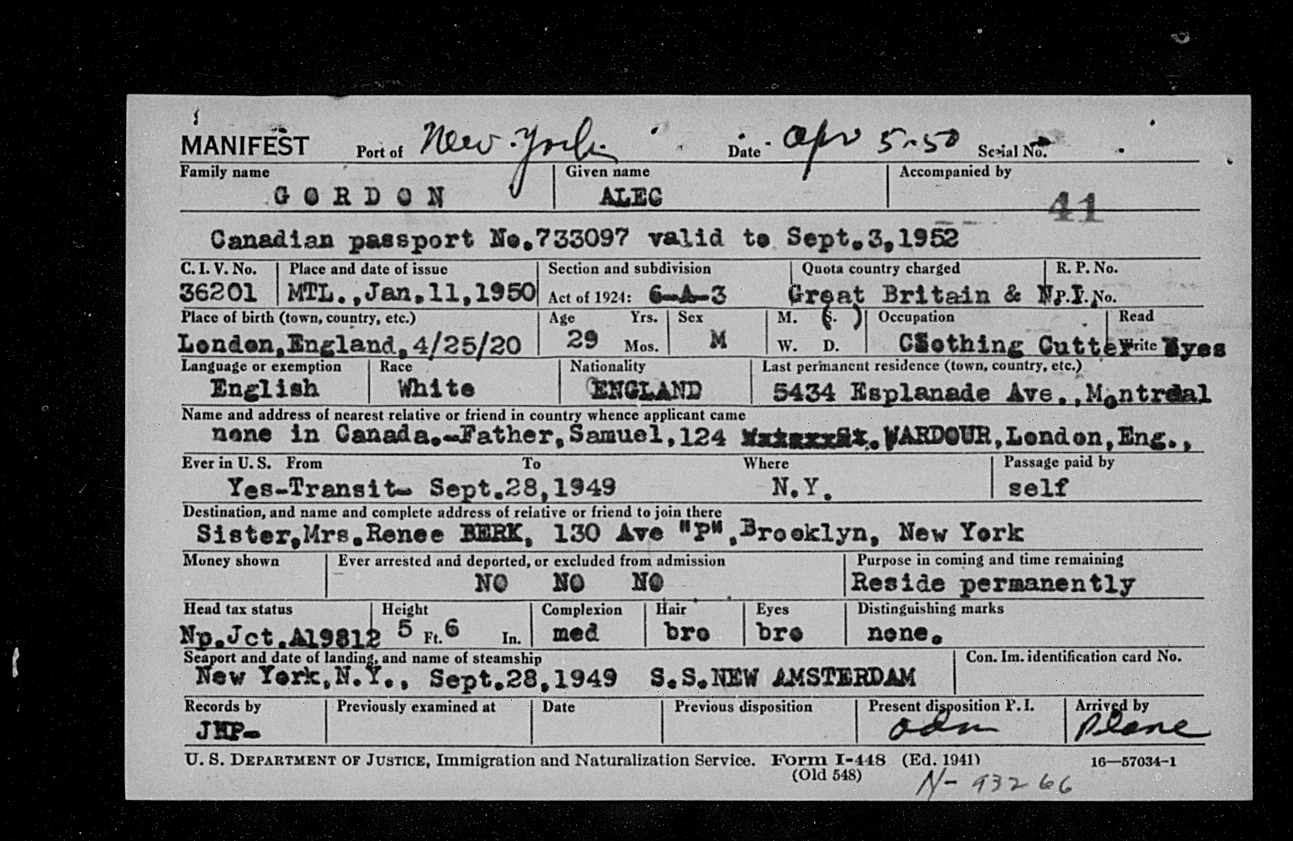 MANIFEST Port of New York Date Apr 5-50 Serial No.
Family name Given name Accompanied by
GORDON ALEC
41
Canadian passport No.733097 valid to Sept.3,1952
C. I. V. No. Place and date of issue Section and subdivision Quota country charged R. P. No.
36201 MTL.,Jan.11,1950 Act of 1924: 6-A-3 Great Britain & N.I. P. I. No.
Place of birth (town, country, etc.) Age Yrs. Sex M. (S.) Occupation Read
London,England,4/25/20 29 Mos. M W. D. Clothing Cutter Write yes
Language or exemption Race Nationality Last permanent residence (town, country, etc.)
English White ENGLAND 5434 Esplanade Ave.,Montreal
Name and address of nearest relative or friend in country whence applicant came
none in Canada.-Father,Samuel,124 WARDOUR,London,Eng.,
Ever in U. S. From To Where Passage paid by
Yes-Transit- Sept.28,1949 N.Y. self
Destination, and name and complete address of relative or friend to join there
Sister,Mrs.Renee BERK, 130 Ave "P",Brooklyn, New York
Money shown Ever arrested and deported, or excluded from admission Purpose in coming and time remaining
NO NO NO Reside permanently
Head tax status Height Complexion Hair Eyes Distinguishing marks
Np.Jct.A19812 5 Ft. 6 In. med bro bro none.
Seaport and date of landing, and name of steamship Con. Im. identification card No.
New York,N.Y., Sept.28,1949 S.S.NEW AMSTERDAM
Records by Previously examined at Date Previous disposition Present disposition P. I. Arrived by
JHP- adm Plane
U. S. DEPARTMENT OF JUSTICE, Immigration and Naturalization Service. Form I-448 (Ed. 1941) 16—57034-1
(Old 548) N- 93266